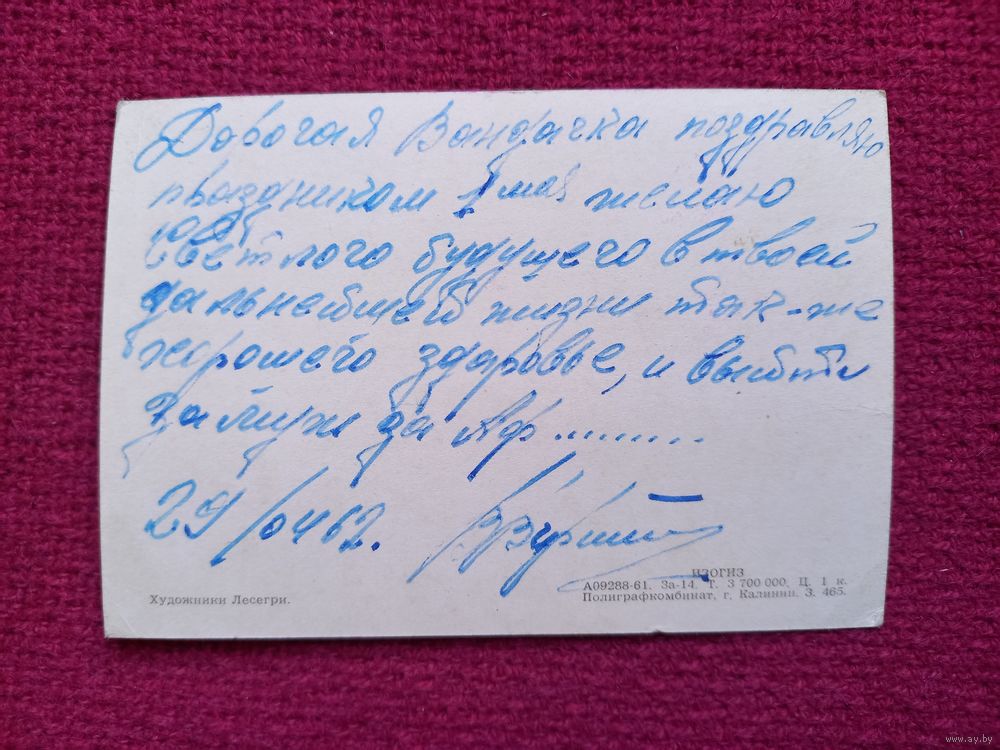 Дорогая Вандачка поздравляю
праздником 1 мая желаю
светлого будущего в твоей
дальнейшей жизни так-же
хорошего здоровье, и выйти
замуж за Аф.........
29/04 62.
Художники Лесегри.
ИЗОГИЗ
А09288-61. За-14. Т. 3 700 000. Ц. 1 к.
Полиграфкомбинат, г. Калинин. З. 465.
www.ay.by